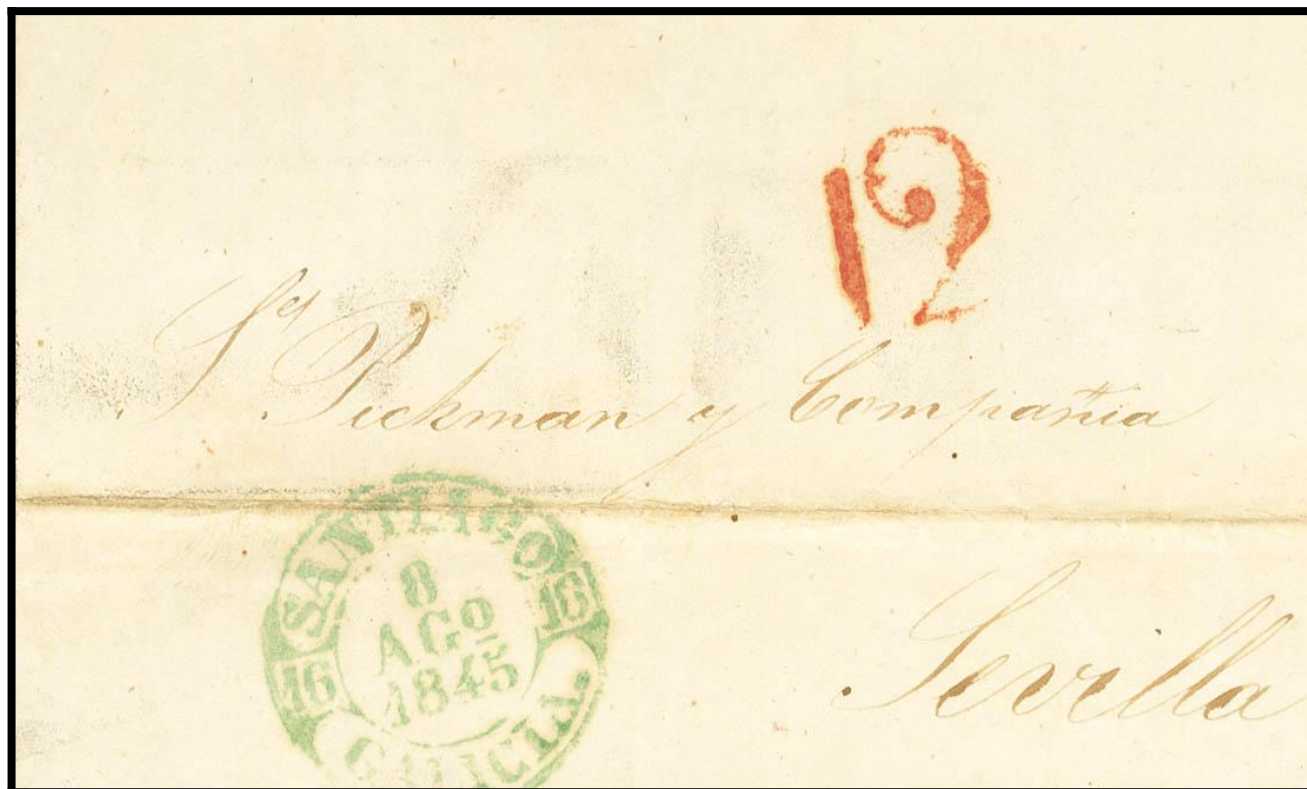 12
Sres Pickman y Compañia
SANTIAGO
8
AGO
1845
16
16
GALICIA.
Sevilla